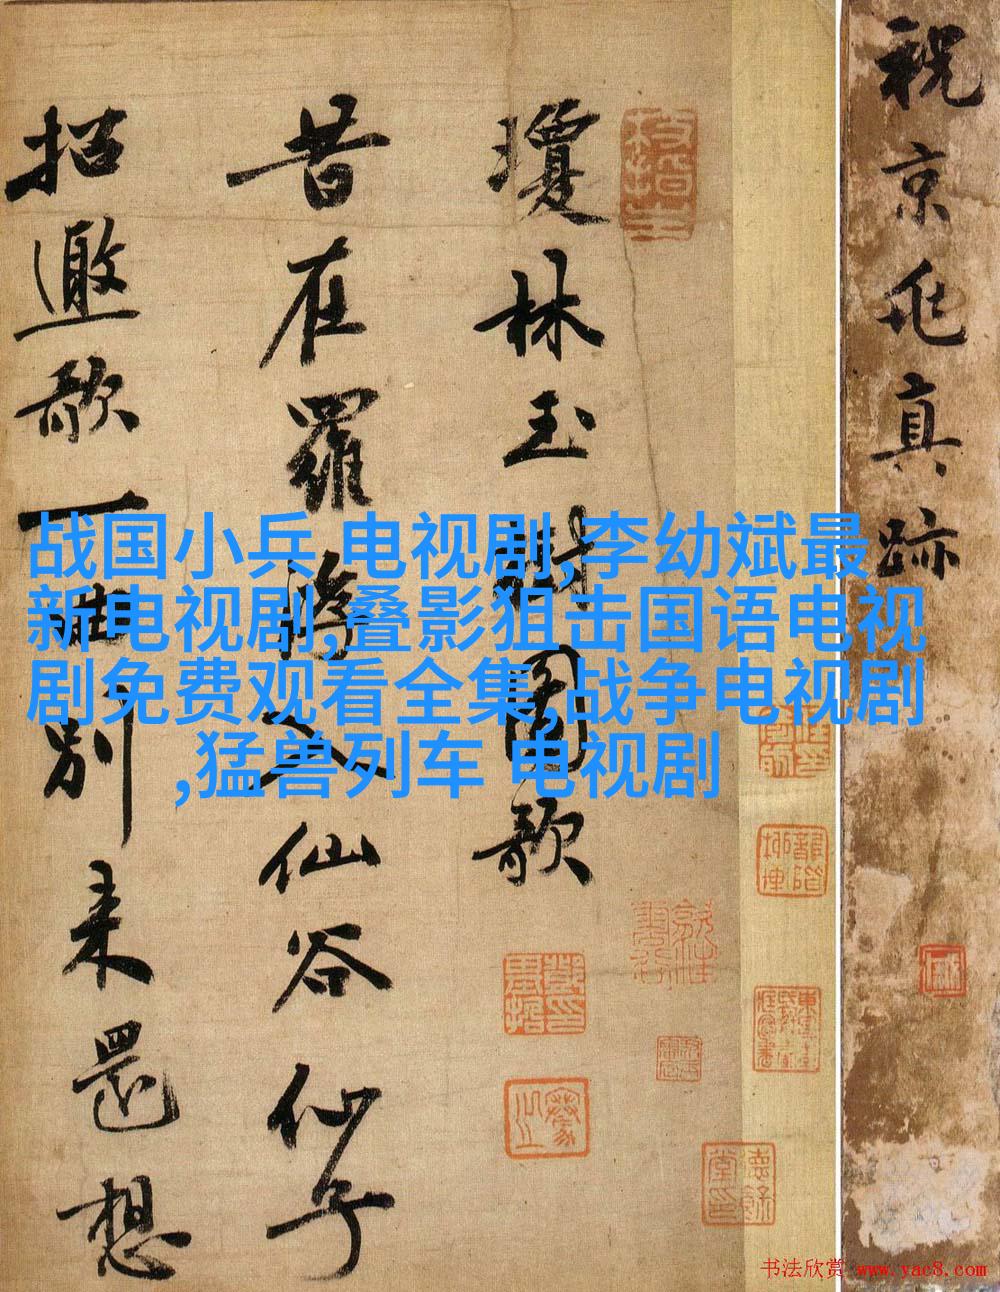 祝京兆真跡
枝指生
瓊林玉樹圖歌
昔在羅仙谷仙子
招邀歌一曲別来還想
战国小兵 电视剧,李幼斌最
新电视剧,叠影狙击国语电视
剧免费观看全集,战争电视剧
,猛兽列车 电视剧
书法欣赏 www.yac8.com